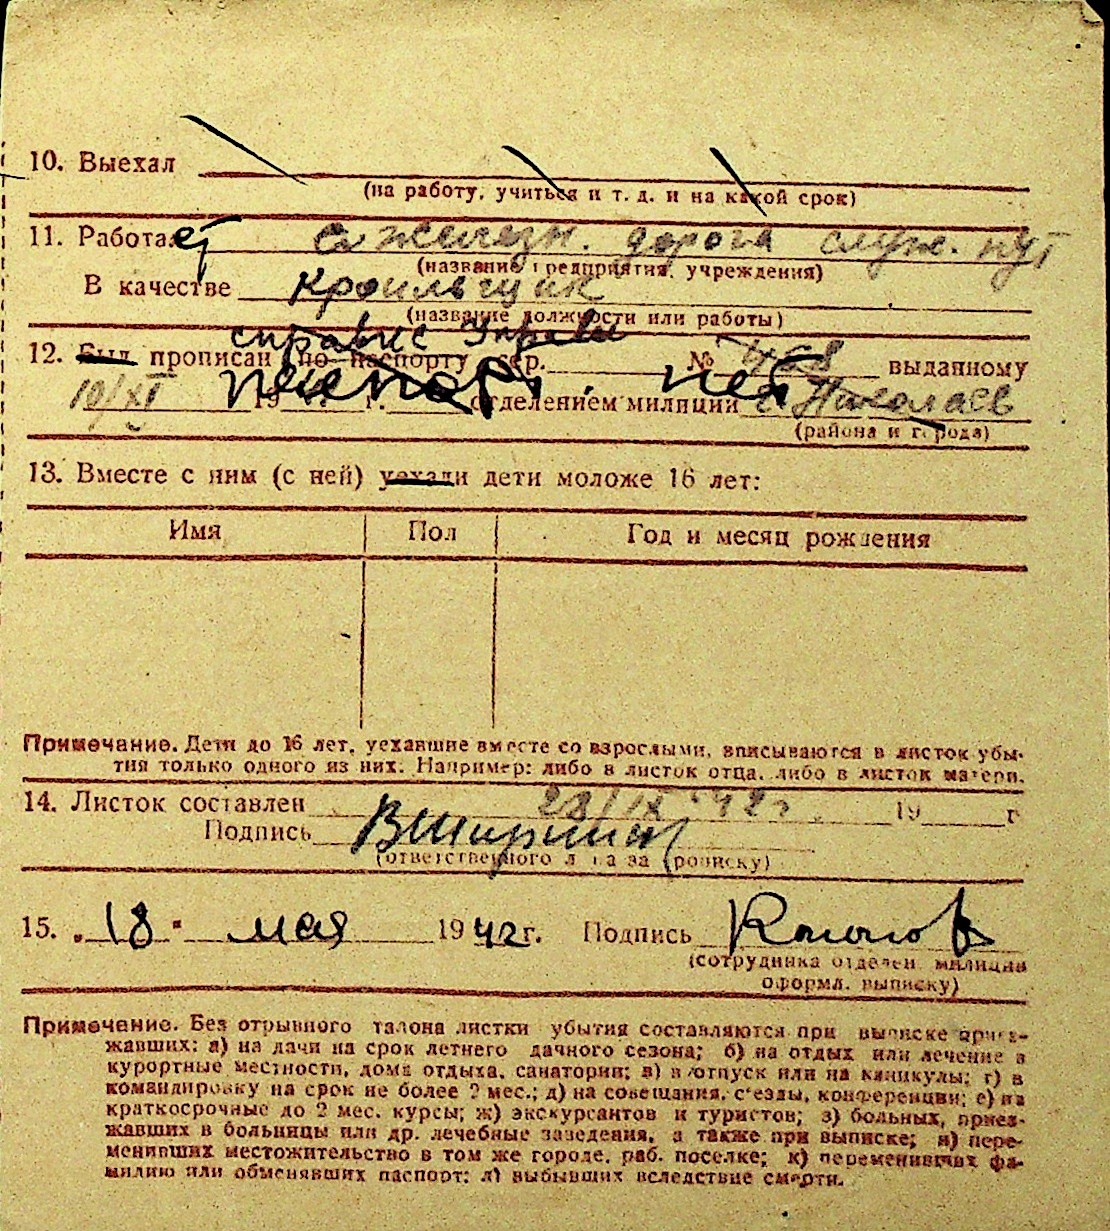 10. Выехал
(на работу, учиться и т. д. и на какой срок)
11. Работает железн. дорога служ. пут
(название предприятия, учреждения)
В качестве
(название должности или работы)
справке Управы
12. Был прописан по паспорту сер. № 468 выданному
10/XI паспорт. нет 19 г. отделением милиции г. Николаев
(района и города)
13. Вместе с ним (с ней) уехали дети моложе 16 лет:
Имя Пол Год и месяц рождения
Примечание. Дети до 16 лет, уехавшие вместе со взрослыми, вписываются в листок убы-
тия только одного из них. Например: либо в листок отца, либо в листок матери.
14. Листок составлен 28/IX 42г. 19 г
Подпись
(ответственного лица за прописку)
15. „18" мая 1942г. Подпись
(сотрудника отделен. милиции
оформл. выписку)
Примечание. Без отрывного талона листки убытия составляются при выписке приез-
жавших: а) на дачи на срок летнего дачного сезона; б) на отдых или лечение в
курортные местности, дома отдыха, санатории; в) в отпуск или на каникулы; г) в
командировку на срок не более 2 мес.; д) на совещания, съезды, конференции; е) на
краткосрочные до 2 мес. курсы; ж) экскурсантов и туристов; з) больных, приез-
жавших в больницы или др. лечебные заведения, а также при выписке; и) пере-
менивших местожительство в том же городе, раб. поселке; к) переменивших фа-
милию или обменявших паспорт; л) выбывших вследствие смерти.